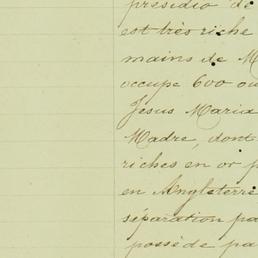 presidio de
est très riche
mains de M
occupe 600 ou
Jesus Maria
Madre, dont
riches en or p
en Angleterre
séparation pa
possède pa